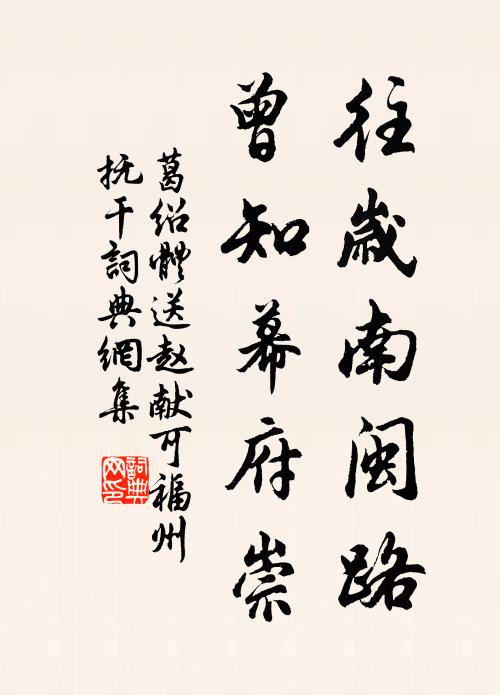 往歲南闽路
曾知幕府崇
葛绍體送赵献可福州
抚干詞典網集
詞典
网印